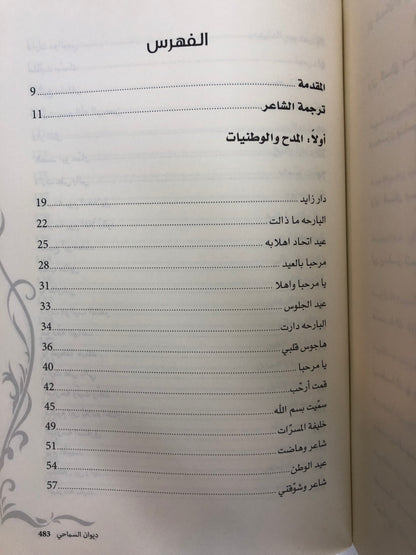 الفهرس
المقدمة 9
ترجمة الشاعر 11
أولاً: المدح والوطنيات
دار زايد 19
البارحه ما ذالت 22
عيد اتحاد اهلا به 25
مرحبا بالعيد 28
يا مرحبا واهلا 31
عيد الجلوس 33
البارحه دارت 34
هاجوس قلبي 36
يا مرحبا 40
قمت أرحّب 42
سمّيت بسم الله 45
خليفة المسرّات 49
شاعر وهاضت 51
عيد الوطن 54
شاعر وشوّقتي 57
ديوان السماحي 483